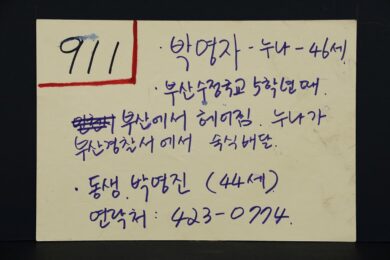 911
· 박영자 - 누나 - 46세.
· 부산수정국교 5학년때
부산에서 헤어짐. 누나가
부산경찰서에서 숙식배달.
· 동생 박영진 (44세)
연락처 : 423-0774.